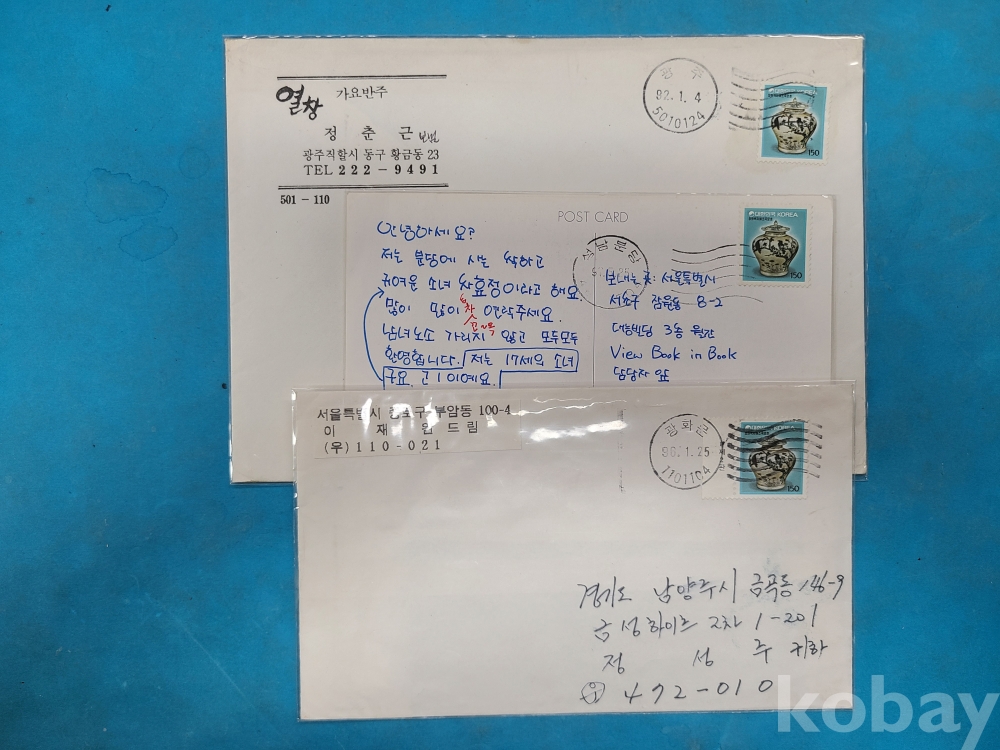 열창 가요반주
정 춘 근 보냄
광주직할시 동구 황금동 23
TEL 222-9491
501-110
광주
92.1.4
5010124
대한민국 KOREA
150
POST CARD
안녕하세요?
저는 분당에 사는 착하고
귀여운 소녀 차효정이라고 해요.
많이 많이 연락주세요.
남녀노소 가리지 않고 모두모두
환영합니다. 저는 17세의 소녀
구요. 고1이예요.
차
성남분당
대한민국 KOREA
150
보내는 곳: 서울특별시
서초구 잠원동 8-2
대능빌딩 3층 월간
View Book in Book
담당자 앞
서울특별시 종로구 부암동 100-4
이 재 원 드 림
(우) 110-021
광화문
1101104
대한민국 KOREA
150
경기도 남양주시 금곡동 146-9
금성하이츠 2차 1-201
정 성 주 귀하
우 472-010
kobay